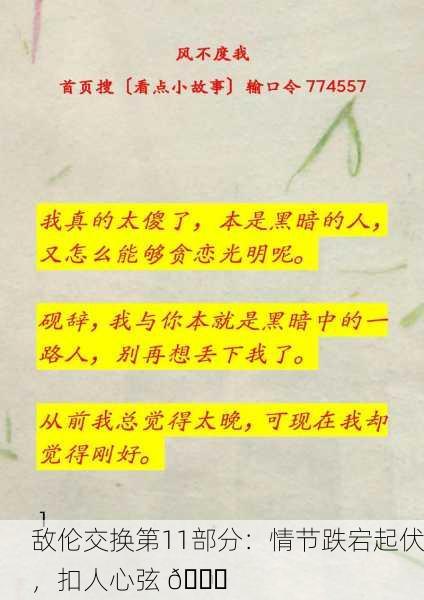 风不度我
首页搜〔看点小故事〕输口令 774557
我真的太傻了，本是黑暗的人，
又怎么能够贪恋光明呢。
砚辞，我与你本就是黑暗中的一
路人，别再想丢下我了。
从前我总觉得太晚，可现在我却
觉得刚好。
1
敌伦交换第11部分：情节跌宕起伏
，扣人心弦 ð